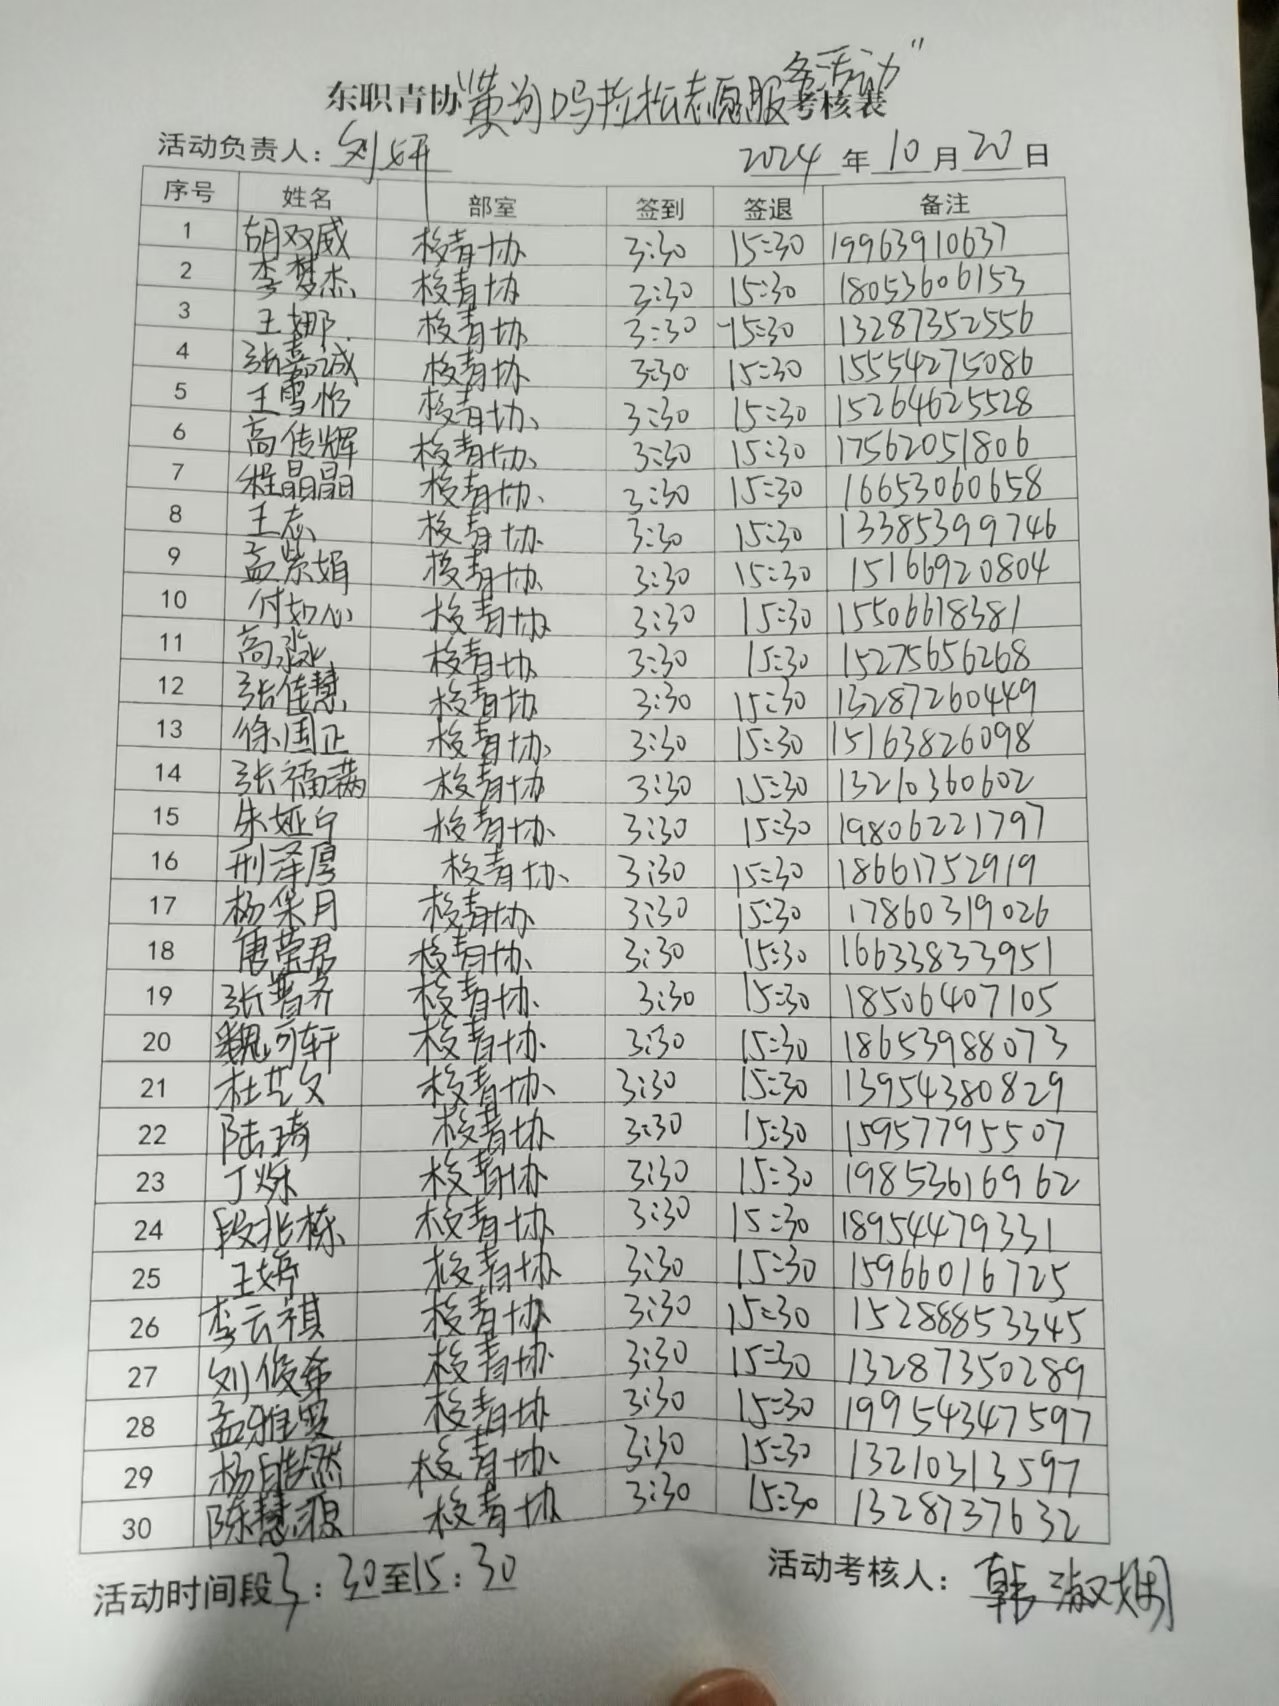 东职青协“黄河口马拉松志愿服务活动”考核表
活动负责人：刘妍 2024年10月20日
序号 姓名 部室 签到 签退 备注
1 胡双威 校青协 3:30 15:30 19963910637
2 李梦杰 校青协 3:30 15:30 18053606153
3 王娜 校青协 3:30 15:30 13287352556
4 张嘉诚 校青协 3:30 15:30 15554275086
5 王雪怡 校青协 3:30 15:30 15264625528
6 高传辉 校青协 3:30 15:30 17562051806
7 程晶晶 校青协 3:30 15:30 16653060658
8 王志 校青协 3:30 15:30 13385399746
9 孟紫娟 校青协 3:30 15:30 15166920804
10 付如心 校青协 3:30 15:30 15506618381
11 高淼 校青协 3:30 15:30 15275656268
12 张佳慧 校青协 3:30 15:30 13287260449
13 徐国正 校青协 3:30 15:30 15163826098
14 张福满 校青协 3:30 15:30 13210360602
15 朱娅宁 校青协 3:30 15:30 19806221797
16 刑泽厚 校青协 3:30 15:30 18661752919
17 杨保月 校青协 3:30 15:30 17860319026
18 唐荣君 校青协 3:30 15:30 16633833951
19 张普齐 校青协 3:30 15:30 18506407105
20 魏可轩 校青协 3:30 15:30 18653988073
21 杜艺文 校青协 3:30 15:30 13954380829
22 陆琦 校青协 3:30 15:30 15957795507
23 丁烁 校青协 3:30 15:30 19853616962
24 段兆栋 校青协 3:30 15:30 18954479331
25 王婷 校青协 3:30 15:30 15966016725
26 李云祺 校青协 3:30 15:30 15288853345
27 刘俊希 校青协 3:30 15:30 13287350289
28 孟雅雯 校青协 3:30 15:30 19954347597
29 杨皓然 校青协 3:30 15:30 13210313597
30 陈慧源 校青协 3:30 15:30 1328737632
活动时间段3:30至15:30 活动考核人：韩淑娴